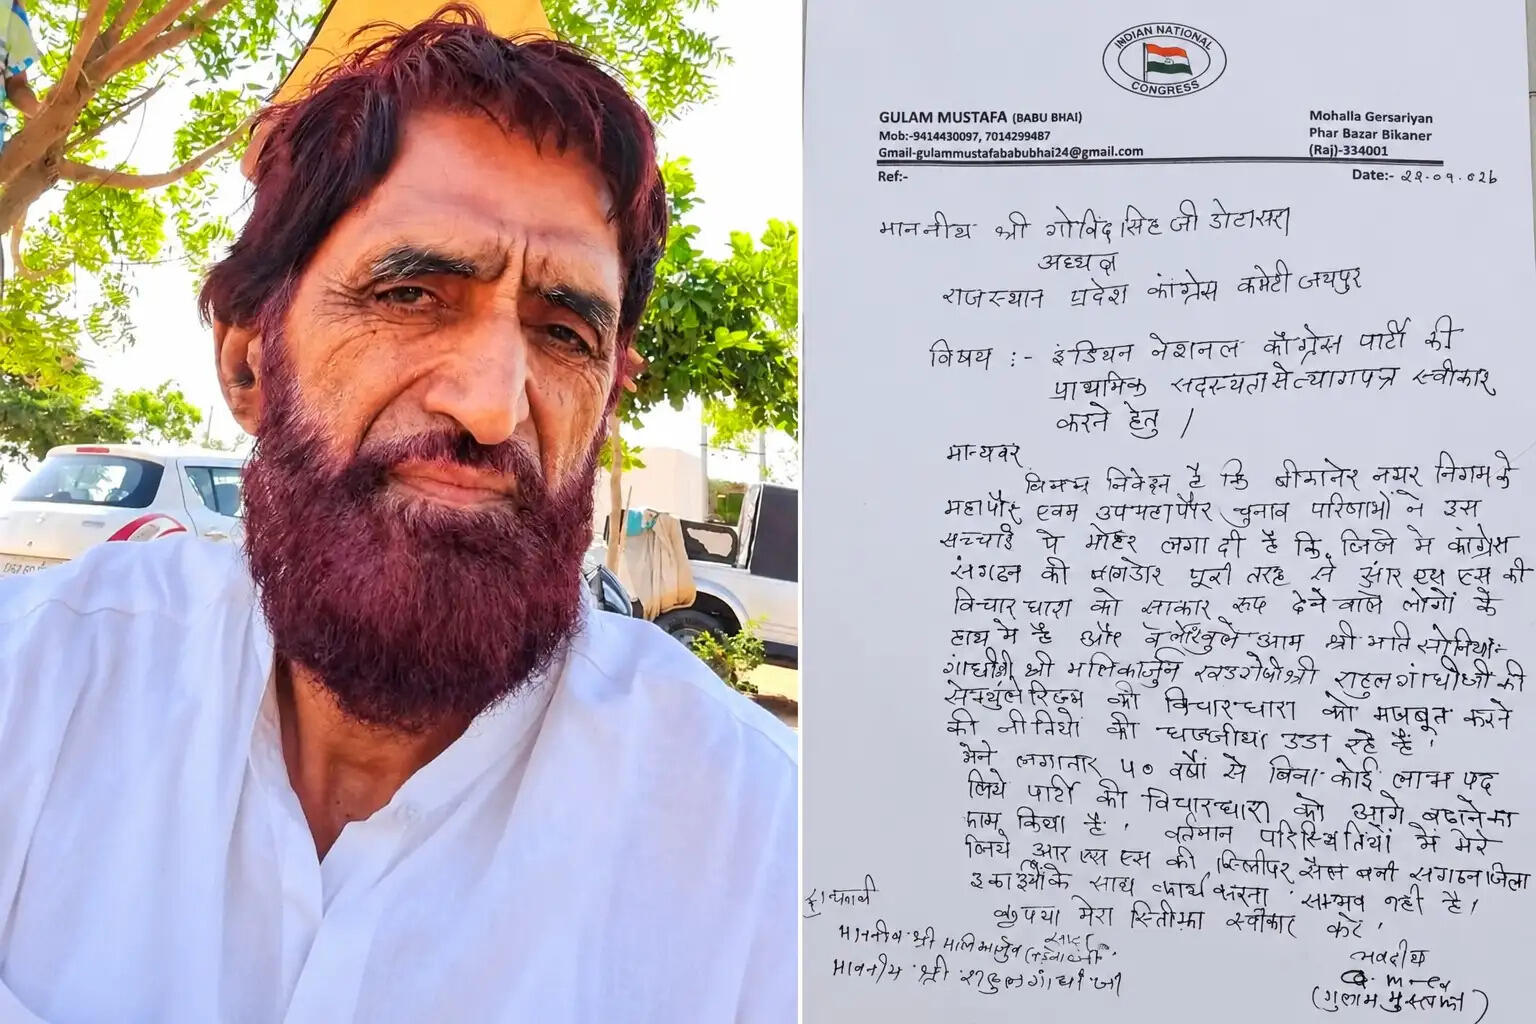 INDIAN NATIONAL
CONGRESS
GULAM MUSTAFA (BABU BHAI)
Mob:-9414430097, 7014299487
Gmail-gulammustafababubhai24@gmail.com
Mohalla Gersariyan
Phar Bazar Bikaner
(Raj)-334001
Ref:-
Date:-
माननीय श्री गोविंदसिंह जी डोटासरा
अध्यक्ष
राजस्थान प्रदेश कांग्रेस कमेटी जयपुर
विषय :- इंडियन नेशनल काँग्रेस पार्टी की
प्राथमिक सदस्यता से त्यागपत्र स्वीकार
करने हेतु ।
मान्यवर
विनम्र निवेदन है कि बीकानेर नगर निगम के
महापौर एवम उपमहापौर चुनाव परिणामों ने इस
सच्चाई पे मोहर लगा दी है कि जिले मे कांग्रेस
संगठन की बागडोर पूरी तरह से आर एस एस की
विचारधारा को साकार रूप देने वाले लोगों के
हाथ मे है और आम श्रीमति सोनिया
गांधी श्री मलिकार्जुन श्री राहुल गांधीजी की
की विचारधारा को मजबूत करने
की नीतियो की धज्जीया उडा रहे है ।
मेने लगातार ५० वर्षों से बिना कोई लाभ पद
लिये पार्टी की विचारधारा को आगे बढाने का
काम किया है । वर्तमान परिस्थितियों में मेरे
लिये आर एस एस की स्लीपर सैल बनी सगठन जिला
इकाईयों के साथ कार्य करना सम्भव नही है ।
कृपया मेरा स्वीकार करे ।
भवदीय
(गुलाम मुस्तफा)
माननीय श्री
माननीय श्री राहुल गांधी जी